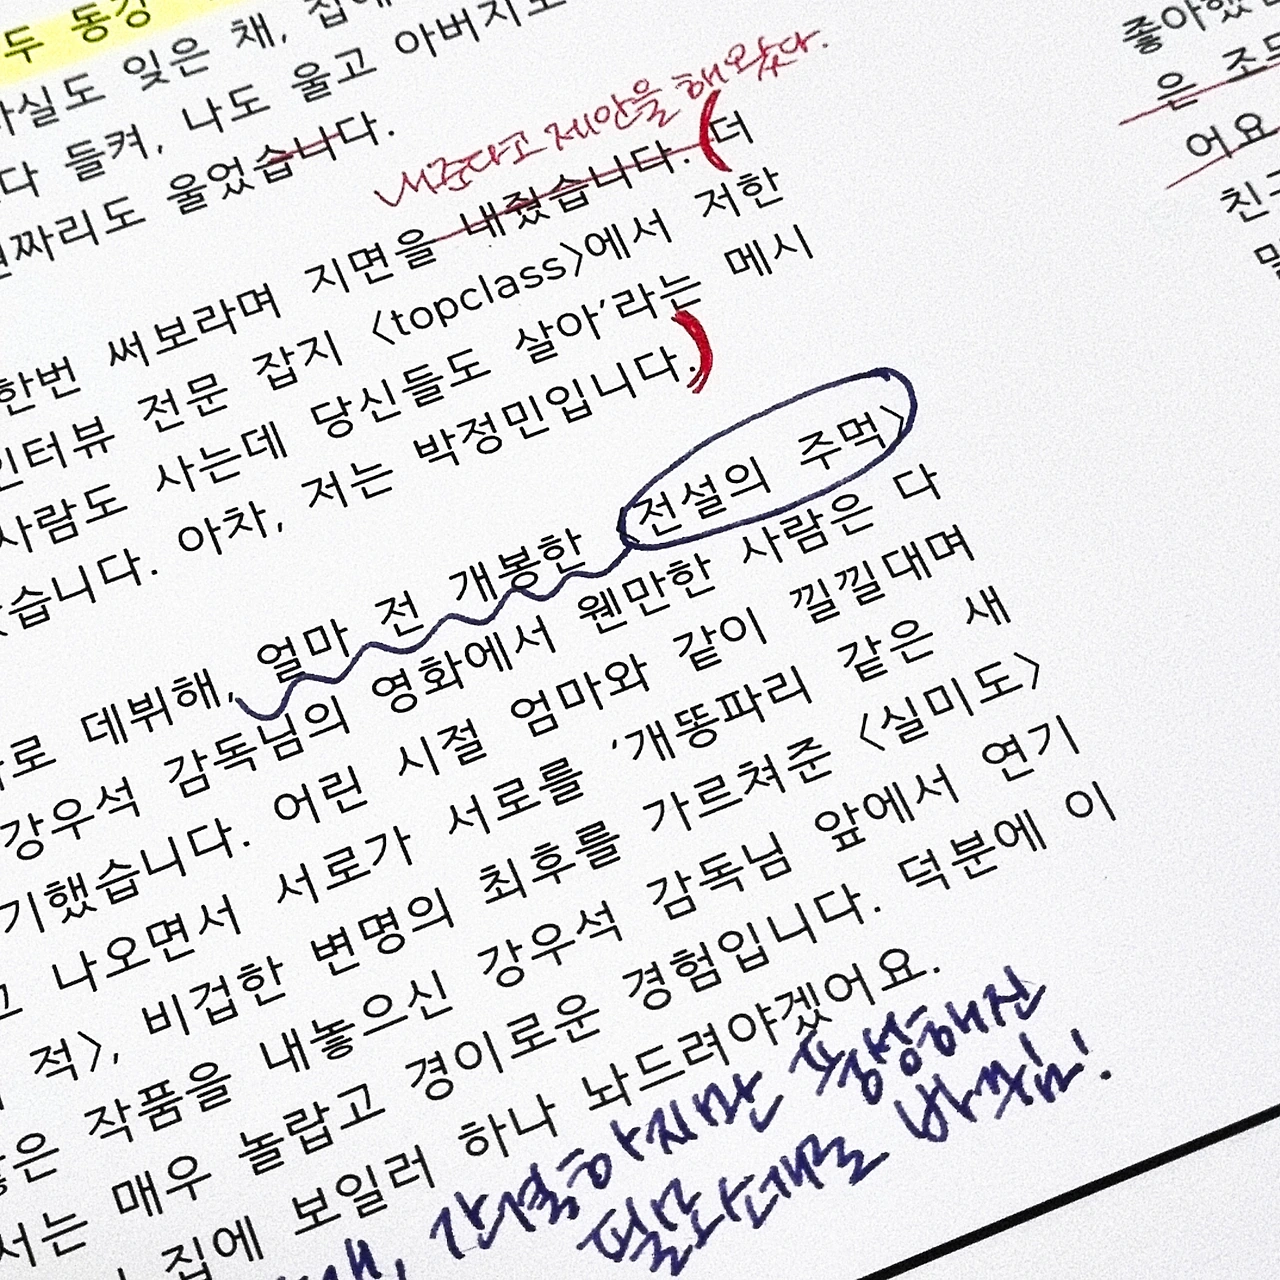 두 동강
사실도 잊은 채, 집에
다 들켜, 나도 울고 아버지도
짜리도 울었습니다.
내준다고 제안을 해왔다.
한번 써보라며 지면을 내줬습니다. (더
인터뷰 전문 잡지 <topclass>에서 저한
사람도 사는데 당신들도 살아'라는 메시
습니다. 아차, 저는 박정민입니다.)
로 데뷔해, 얼마 전 개봉한 <전설의 주먹>
강우석 감독님의 영화에서 웬만한 사람은 다
기했습니다. 어린 시절 엄마와 같이 낄낄대며
고 나오면서 서로가 서로를 '개똥파리 같은 새
적>, 비겁한 변명의 최후를 가르쳐준 <실미도>
은 작품을 내놓으신 강우석 감독님 앞에서 연기
서는 매우 놀랍고 경이로운 경험입니다. 덕분에 이
집에 보일러 하나 놔드려야겠어요.
간결하지만 풍성해진
필모 바뀜!
좋아했
은 조
어요
친구